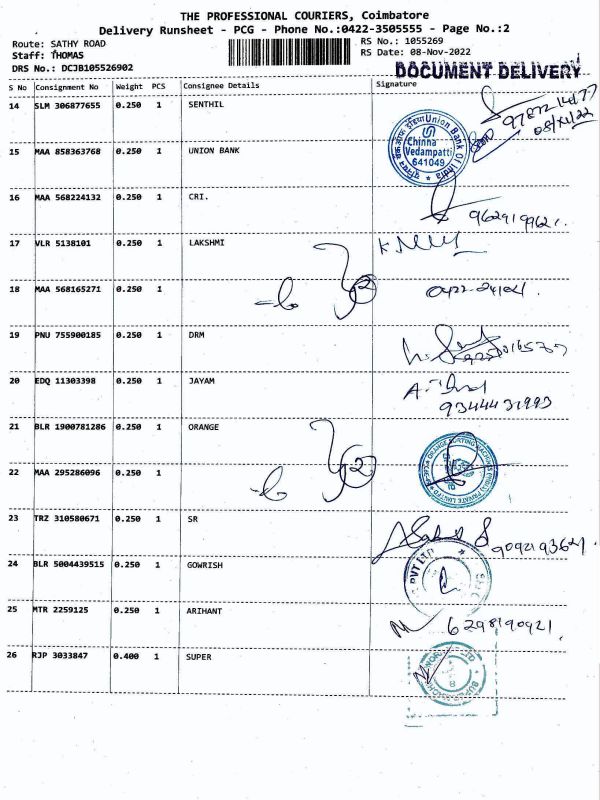 THE PROFESSIONAL COURIERS, Coimbatore
Delivery Runsheet - PCG - Phone No.:0422-3505555 - Page No.:2
Route: SATHY ROAD
Staff: THOMAS
DRS No.: DCJB105526902
RS No.: 1055269
RS Date: 08-Nov-2022
DOCUMENT DELIVERY
S No Consignment No Weight PCS Consignee Details Signature
14 SLM 306877655 0.250 1 SENTHIL
08/11/22
15 MAA 858363768 0.250 1 UNION BANK
Union Bank Of India
Chinna
Vedampatti
641049
16 MAA 568224132 0.250 1 CRI.
17 VLR 5138101 0.250 1 LAKSHMI
18 MAA 568165271 0.250 1
19 PNU 755900185 0.250 1 DRM
20 EDQ 11303398 0.250 1 JAYAM
9344431993
21 BLR 1900781286 0.250 1 ORANGE
22 MAA 295286096 0.250 1
23 TRZ 310580671 0.250 1 SR
9092193621
24 BLR 5004439515 0.250 1 GOWRISH
PVT LTD
25 MTR 2259125 0.250 1 ARIHANT
6298190921
26 RJP 3033847 0.400 1 SUPER